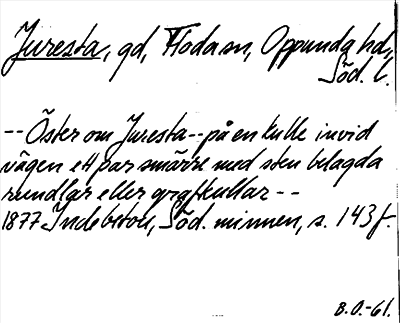 Juresta, gd, Floda sn, Oppunda hd,
Söd. l.
-- Öster om Juresta -- på en kulle invid
vägen ett par smärre med sten belagda
rundlar eller grafkullar --
1877 Indebetou, Söd. minnen, s. 143 f.
B.O.-61.